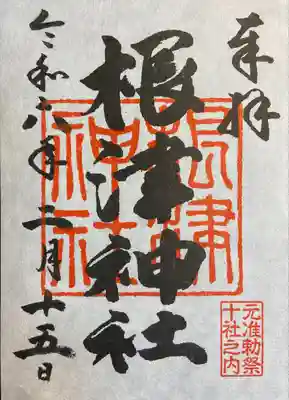 奉拝
根津神社
根津神社
元准勅祭
十社之内
令和八年二月十五日